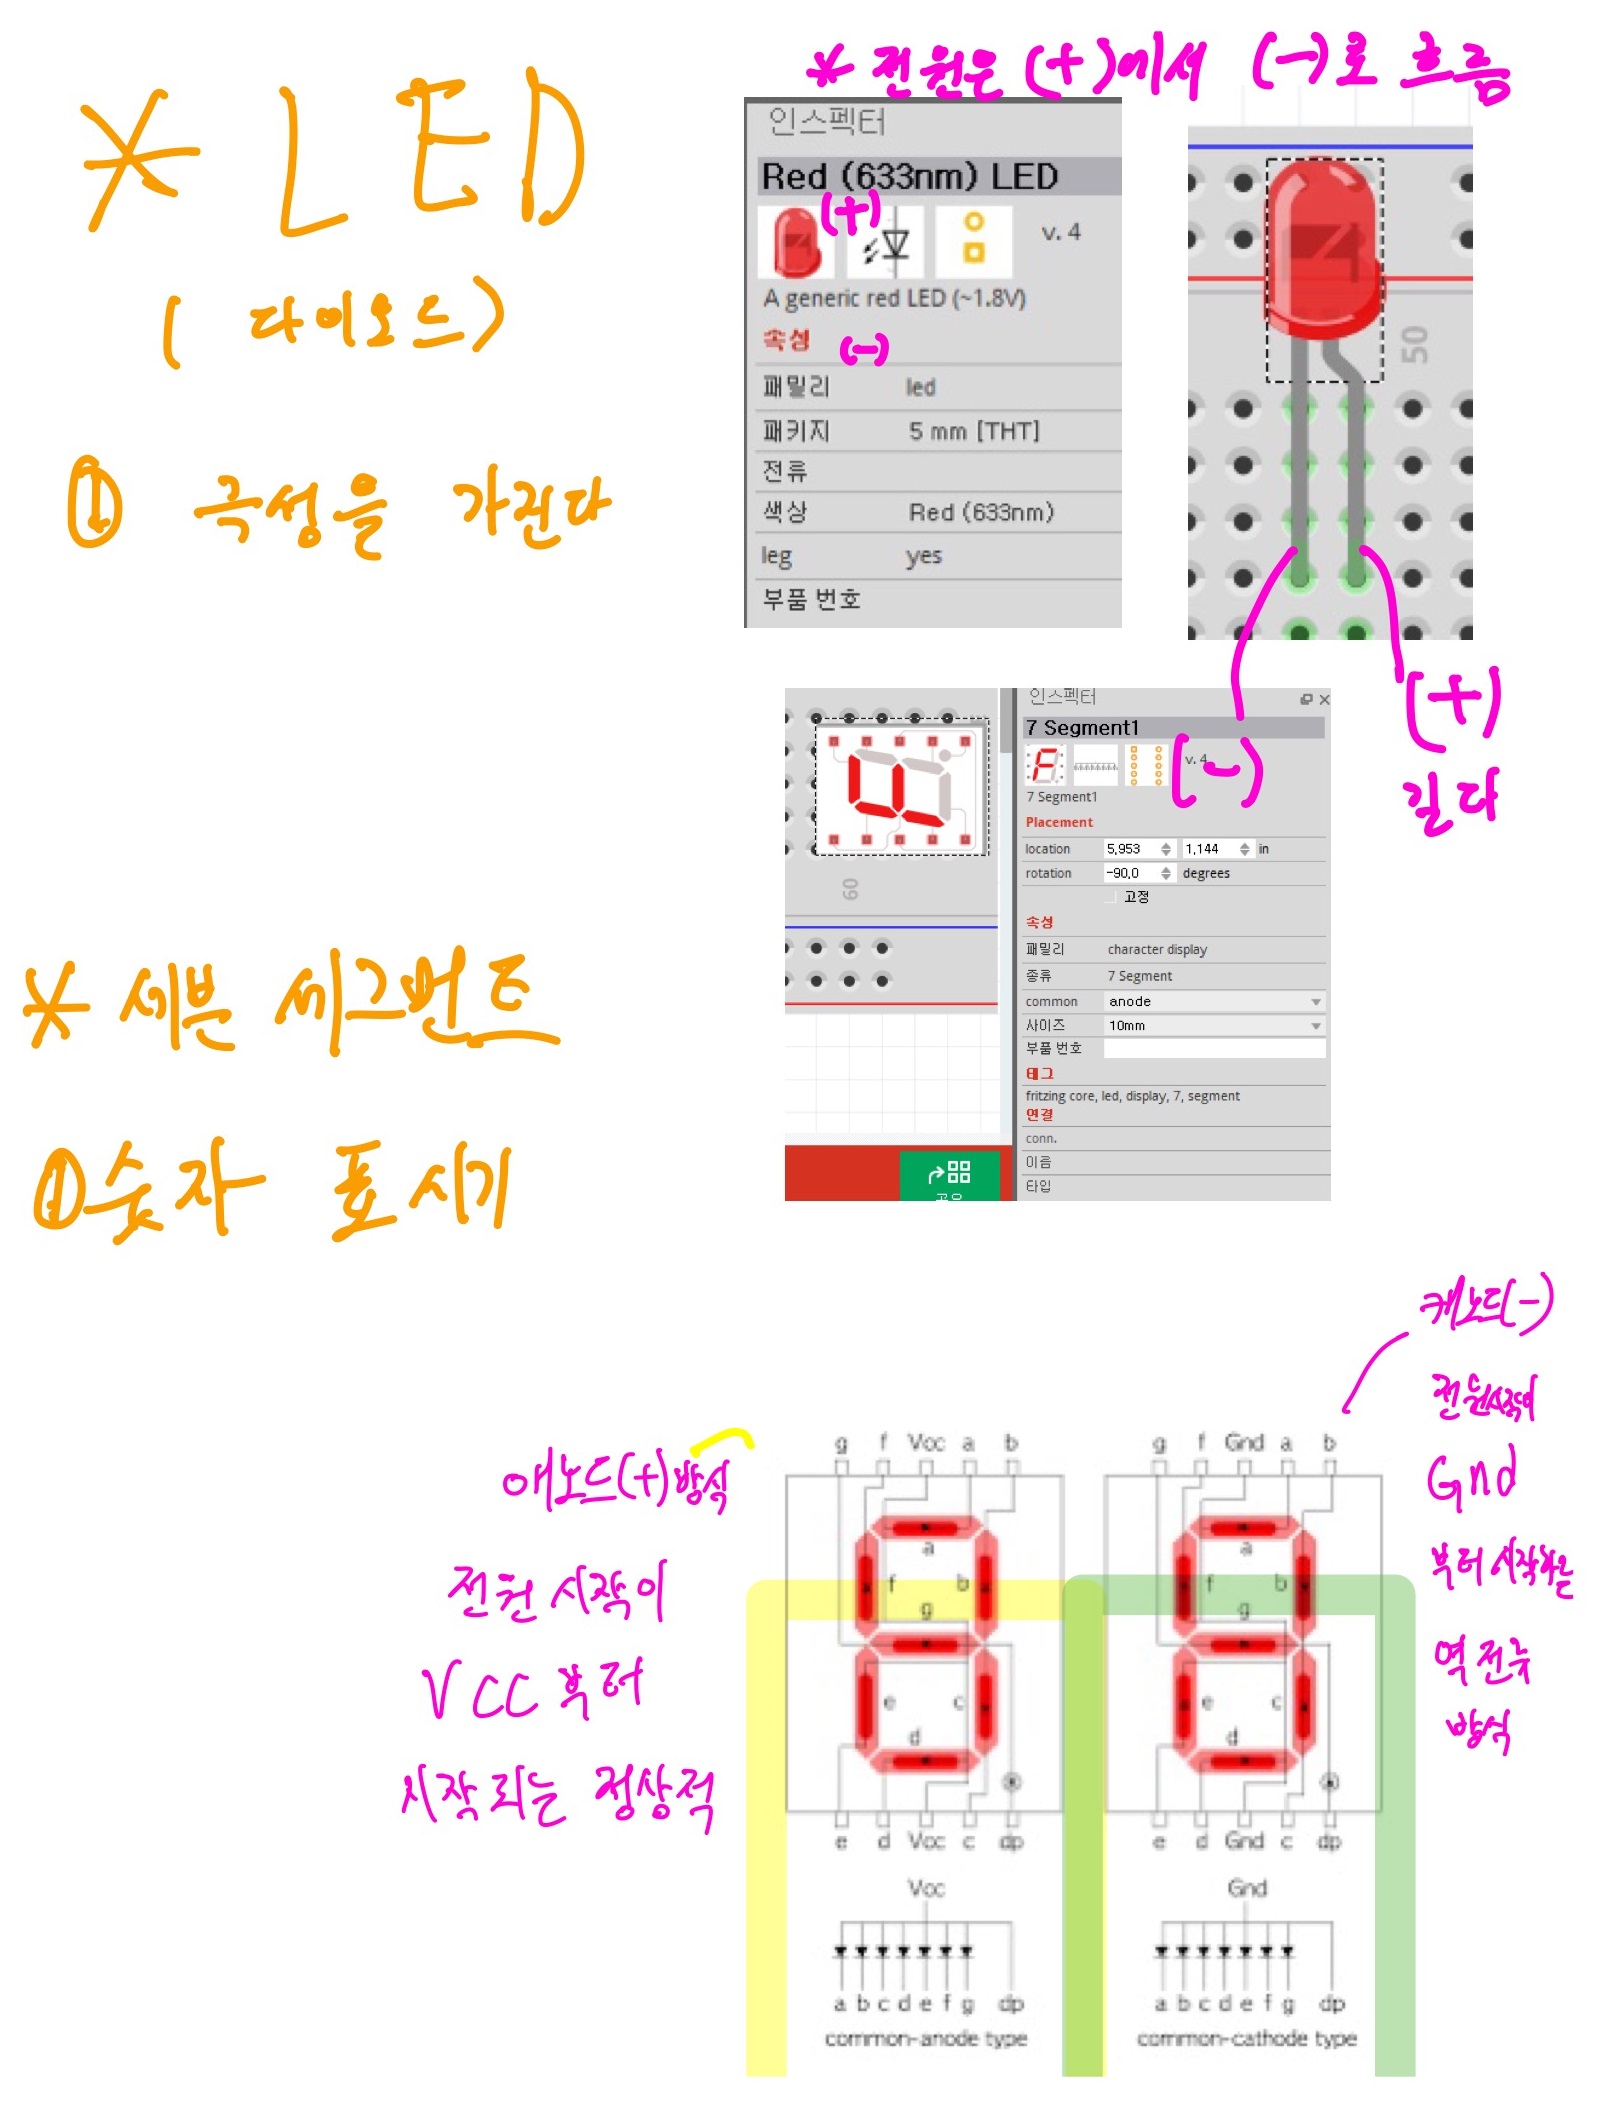 * 전원은 (+)에서 (-)로 흐름
* LED
(다이오드)
① 극성을 가진다
인스펙터
Red (633nm) LED
(+)
v. 4
A generic red LED (~1.8V)
속성
(-)
패밀리 led
패키지 5 mm [THT]
전류
색상 Red (633nm)
leg yes
부품 번호
50
(-)
(+)
길다
60
인스펙터
7 Segment1
v. 4
7 Segment1
Placement
location 5,953 1,144 in
rotation -90,0 degrees
고정
속성
패밀리 character display
종류 7 Segment
common anode
사이즈 10mm
부품 번호
태그
fritzing core, led, display, 7, segment
연결
conn.
이름
타입
공유
* 세븐 세그먼트
① 숫자 표시기
애노드(+) 방식
전원 시작이
VCC 부터
시작되는 정상적
캐노드(-)
전원시작이
Gnd
부터 시작하는
역전류
방식
g f Vcc a b
a
f b
g
e c
d
e d Vcc c dp
Vcc
a b c d e f g dp
common-anode type
g f Gnd a b
a
f b
g
e c
d
e d Gnd c dp
Gnd
a b c d e f g dp
common-cathode type